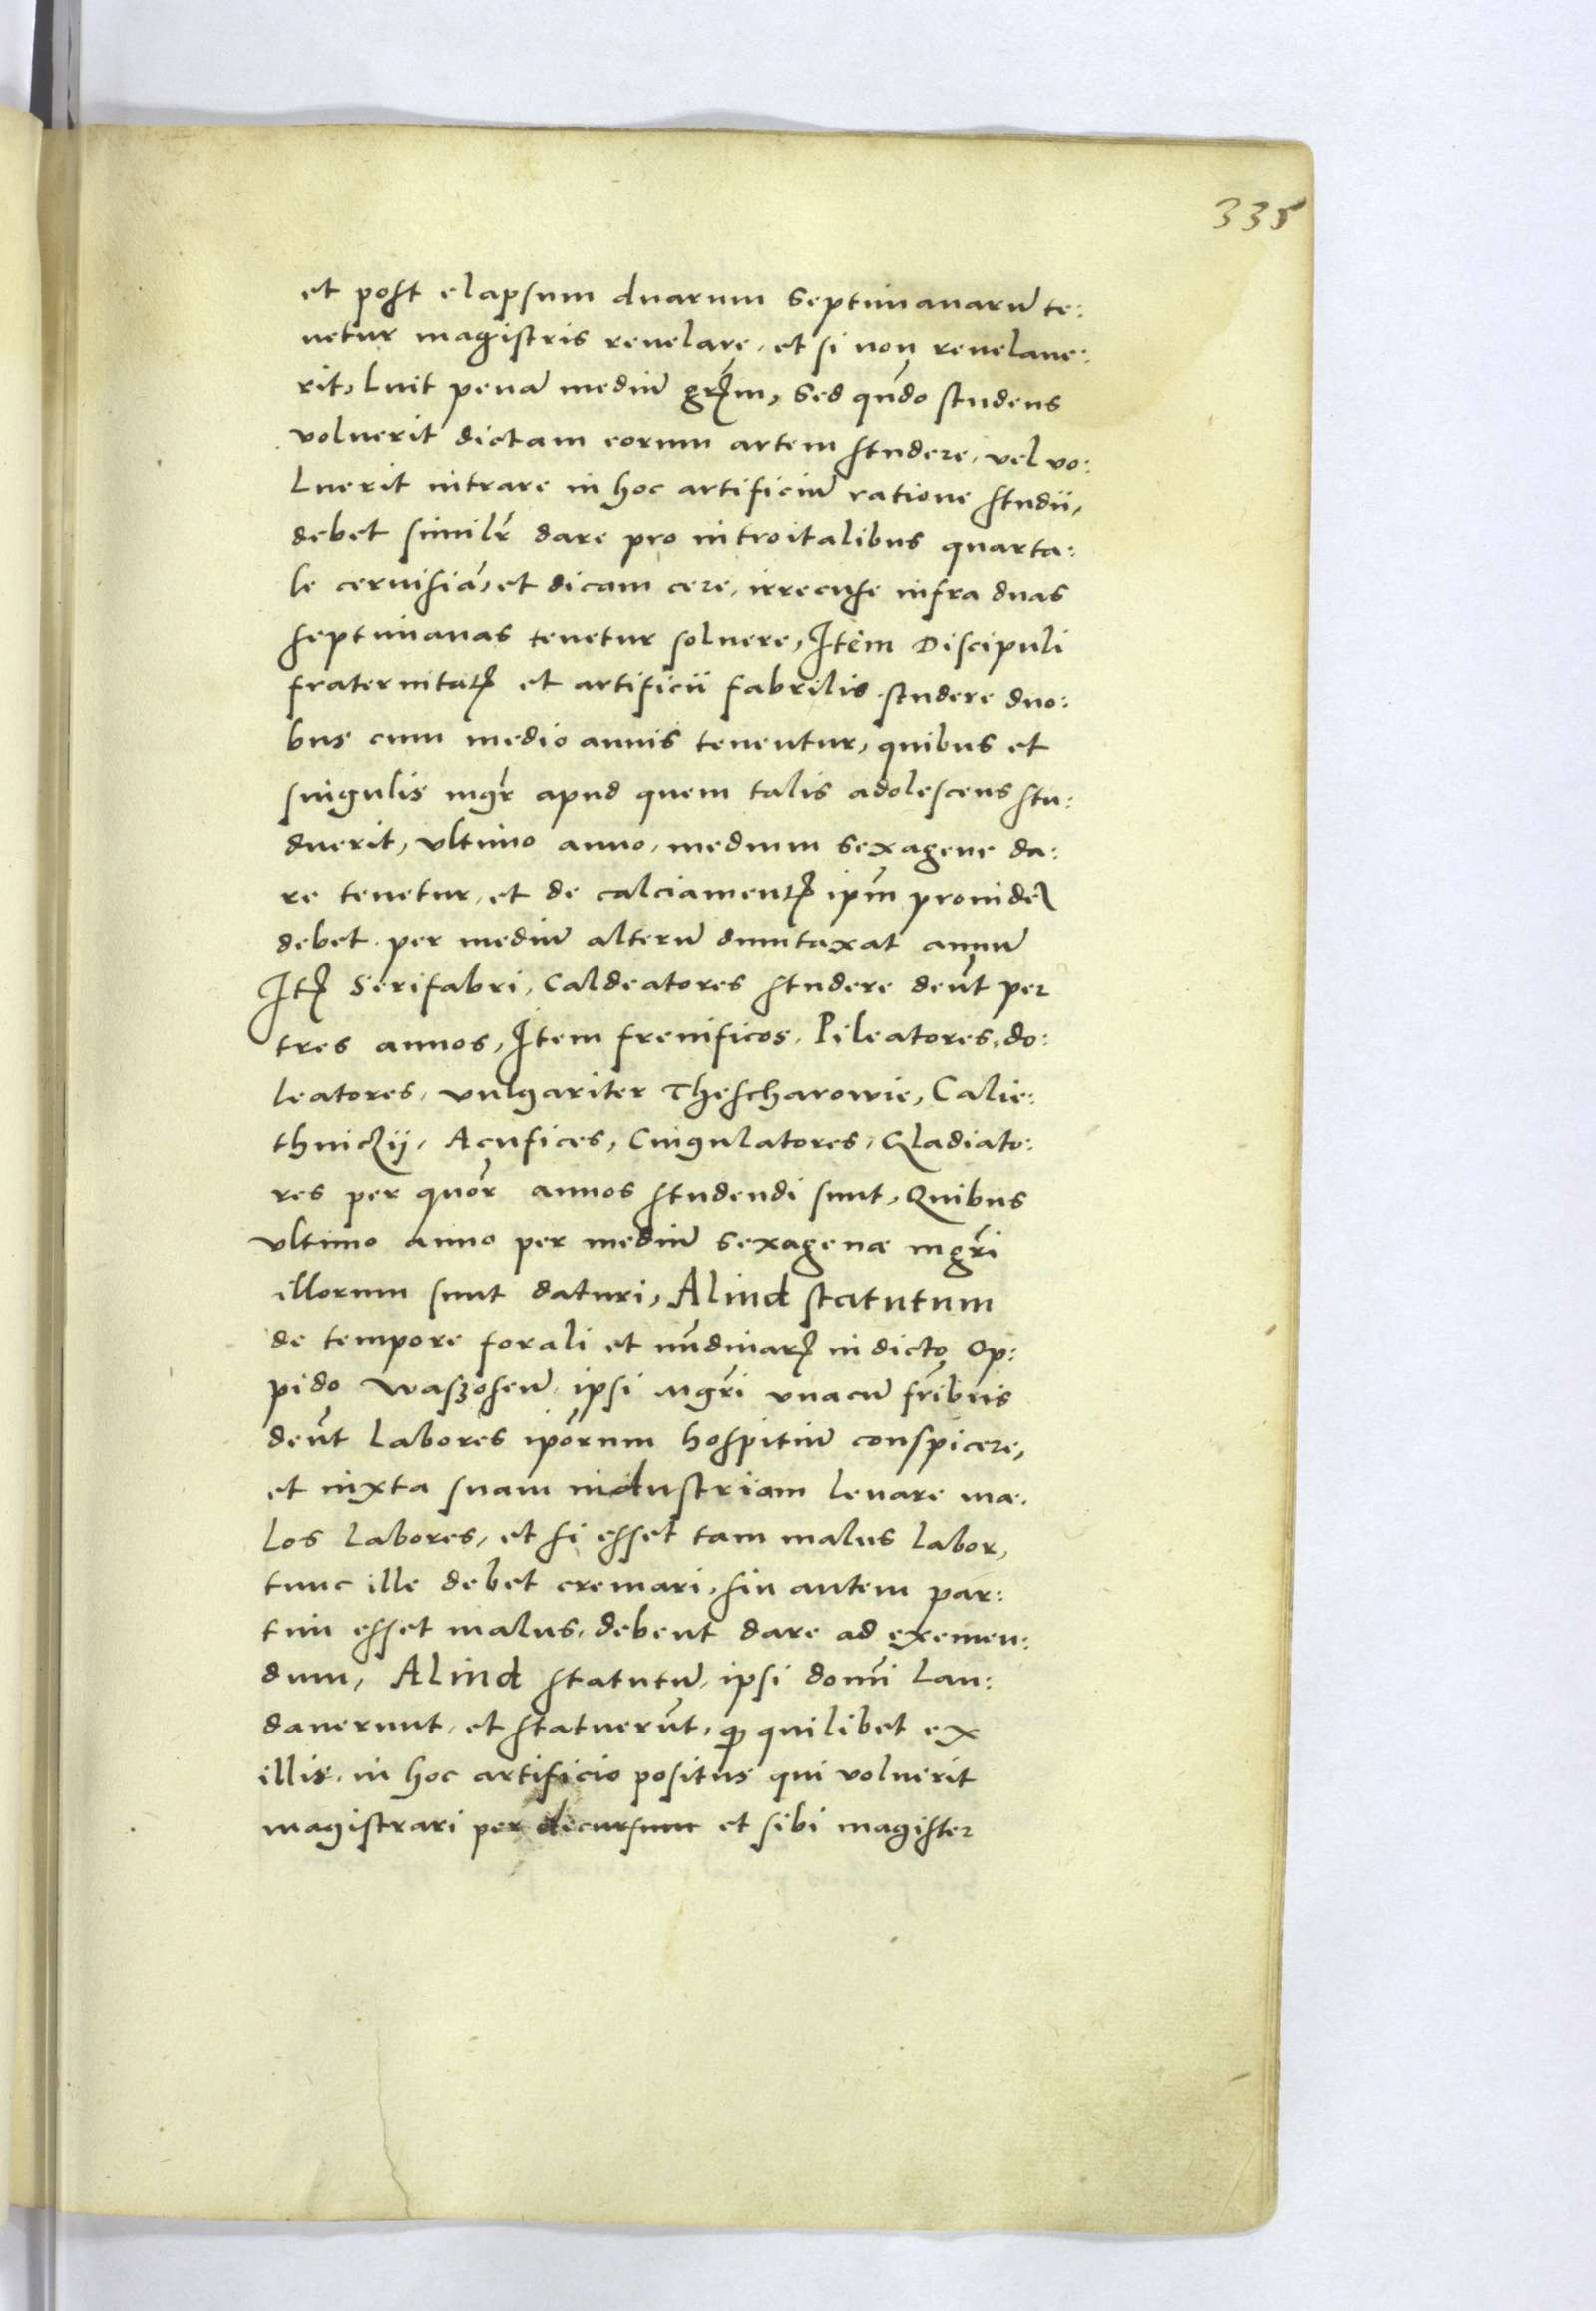 335
et post elapsum duarum septimanarū te:
netur magistris reuelare, et si non reuelaue:
rit, luit penā mediū grꝫm, sed qn̄do studens
voluerit dictam eorum artem studere, vel vo:
luerit intrare in hoc artificiū ratione studii,
debet similr̄ dare pro introitalibus quarta:
le ceruisiā, et dicam cere, irrecuse infra duas
septimanas tenetur soluere, Item Discipuli
fraternitatꝫ et artificii fabrilis studere duo:
bus cum medio annis tenentur, quibus et
singulis mgr̄ apud quem talis adolescens stu:
duerit, vltimo anno, medium sexagene da:
re tenetur, et de calciamentꝫ ipm̄ prouideꝛ
debet per mediū alterū dumtaxat annū
Itꝫ Serifabri, Caldeatores studere deūt per
tres annos, Item frenificos, Pileatores, do:
leatores, vulgariter Thescharowie, Calie:
thniczij, Acufices, Cingulatores, Gladiato:
res per quor̄ annos studendi sunt, Quibus
vltimo anno per mediū sexagenæ mgr̄i
illorum sunt daturi, Aliud statutum
de tempore forali et nūdinarꝫ in dicto Op:
pido Waszosenū ipsi Mgr̄i vnacū fr̄ibus
deūt labores ipōrum hospitiū conspicere,
et iuxta suam industriam leuare ma:
los labores, et si esset tam malus labor,
tunc ille debet cremari, sin autem par:
tim esset malus, debent dare ad exemen:
dum, Aliud statutū, ipsi domī lau:
dauerunt, et statuerūt, ꝙ quilibet ex
illis, in hoc artificio positus qui voluerit
magistrari per decursum et sibi magister